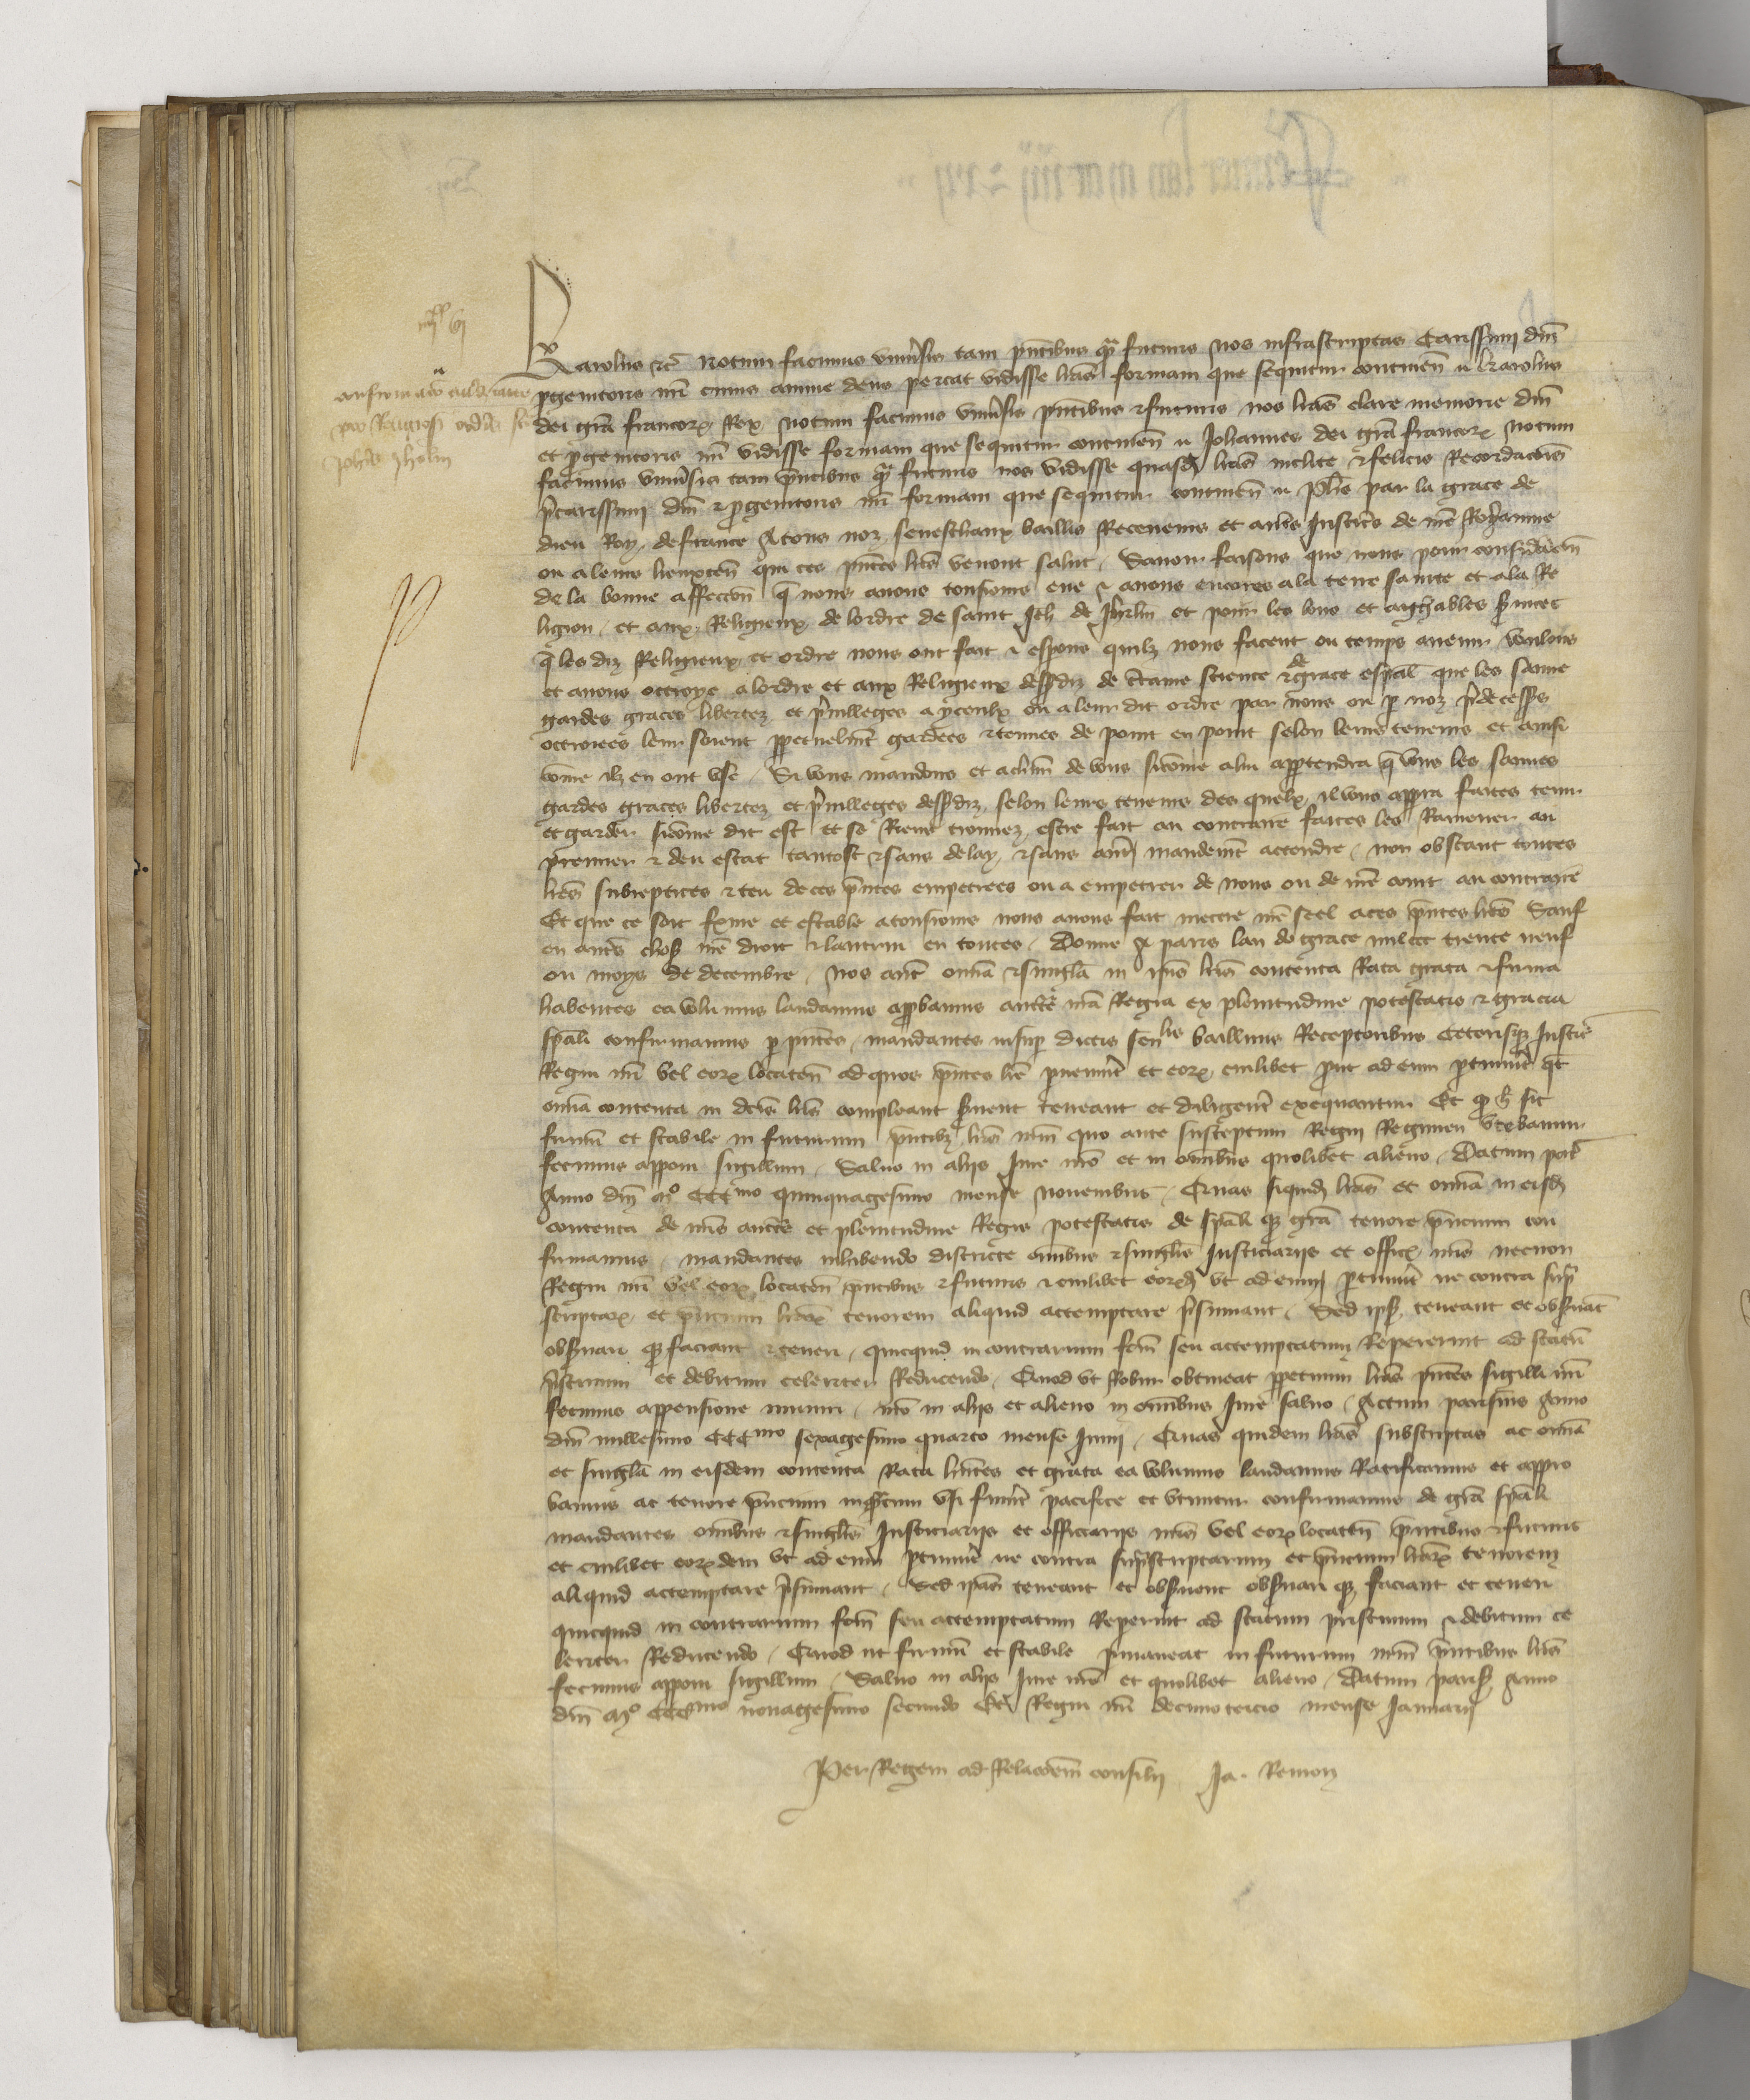 Karolus etc̄ Notum facimus univ̄sis tam pn̄tibus qm̄ futuris nos infrascriptas Carissimi dn̄i
p̄genitoris nr̄i cuius anime deus parcat vidisse lrās formam que sequitur continen̄ Karolus
dei grā francorꝝ Rex Notum facimus univ̄sis pn̄tibus et futuris nos lrās clare memorie dn̄i
et p̄genitoris nr̄i vidisse formam que sequitur continen̄ Johannes dei grā francorꝝ Notum
facimus univ̄sis tam pn̄tibus qm̄ futuris nos vidisse quasd lrās inclite et felicis Recordacōis
p̄carissimi dn̄i et p̄genitoris nr̄i formam que sequitur continen̄ Phē par la grace de
dieu Roy de france A tous noz seneschaux baillis Receveurs et autēs Justicēs de nrē Royaume
ou a leurs lieuxten̄ qui ces pn̄tes lrēs verront salut Savoir faisons que nous pour consid̄acōn
de la bonne affeccōn q̄ nous avons tousiours eue et avons encores a la terre sainte et a la Re
ligion et aux Religieux de lordre de saint Jeh de Jhrlm et pour les bons et aggreables s̄vices
q̄ les diz Religieux et ordre nous ont fait et esperons quilz nous facent ou temps avenir voulons
et avons octroye a lordre et aux Religieux dessdiz de c̄taine science et de grace esp̄al que les sauve
gardes graces libertez et p̄villeges a yceulx ou a leur dit ordre par nous ou p noz p̄decess̄s
octroiees leur soient p̄petuelmt gardees et tenues de point en point selon leurs teneurs et ainsi
com̄e ilz en ont use Si vous mandons et a chūn de vous sicom̄e a lui app̄tendra q̄ vous les sauves
gardes graces libertez et p̄villeges dessdiz selon leurs teneurs des quelx il vous app̄ra faites tenir
et garder sicom̄e dit est et se Riens trouvez estre fait au contraire faites les Ramener au
premier et deu estat tantost et sans delay et sans aut̄ mandemt attendre non obstant toutes
lrēs subreptices et teu de ces pn̄tes empetrees ou a empetrer de nous ou de nrē court au contraire
Et que ce soit ferme et estable a tousiours nous avons fait mettre nrē seel a ces pn̄tes lrēs Sauf
en autēs choses nrē droit et lautrui en toutes Donne A paris lan de grace mil ccc trente neuf
ou moys de decembre Nos aut̄ om̄ia et singl̄a in ip̄is lrīs contenta Rata grata et firma
habentes ea volumus laudamus app̄bamus auctē nrā Regia ex plenitudine potestatis et gracia
sp̄ali confirmamus p pn̄tes mandantes insup dictis senlis baillivis Receptoribus Ceterisqꝫ Justic̄
Regni nr̄i vel eorꝝ locaten̄ ad quos pn̄tes lrē pvenerīt et eorꝝ cuilibet prout ad eum ptinuerīt qt
om̄ia contenta in dcīs lrīs compleant s̄vent teneant et diligenter exequantur Et q̄ h̄ sit
firmū et stabile in futurum pn̄tibꝫ lrīs nrm̄ quo ante susceptum Regni Regimen utebamur
fecimus apponi sigillum Salvo in alijs iure nr̄o et in om̄ibus quolibet alieno Datum paris
Anno dn̄i M° CCCmo quinquagesimo mense Novembris Quas siquid lrās et om̄ia in eisd
contenta de nrīs auctē et plenitudine Regis potestatis de sp̄ali qꝫ grā tenore pn̄cium con
firmamus mandantes inhibendo districte om̄ibus et singl̄is Justiciarijs et offic̄ nrīs necnon
Regni nr̄i vel eorꝝ locaten̄ pn̄tibus et futuris et cuilibet eorꝝd ut ad eum ptinuerīt ne contra sup̄
scriptarꝝ et pn̄cium lrārꝝ tenorem aliquid attemptare p̄sumant Sed ip̄s teneant et obs̄vāt
obs̄vari qꝫ faciant et teneri quicquid in contrarium fcm̄ seu attemptatum Repererint ad statū
p̄stinum et debitum celeriter Reducendo Quod ut Robur obtineat p̄petuum lrās pn̄tes sigilli nr̄i
fecimus appensione muniri nr̄o in alijs et alieno in om̄ibus Jure salvo Actum parisius Anno
dn̄i millesimo CCCmo sexagesimo quarto mense Junij Quas quidem lrās subscriptas ac om̄ia
et singl̄a in eisdem contenta Rata hn̄tes et grata ea volumus laudamus Ratificamus et appro
bamus ac tenore pn̄cium inq̄ntum usi fuerīt pacifice et utuntur confirmamus de grā sp̄ali
mandantes om̄ibus et singl̄is Justiciarijs et officiarijs nrīs vel eorꝝ locaten̄ pn̄tibus et futuris
et cuilibet eorꝝdem ut ad eum ptinuerīt ne contra sup̄scriptarum et pn̄cium lrārꝝ tenorem
aliquid attemptare p̄sumant Sed ip̄as teneant et obs̄vent obs̄vari qꝫ faciant et teneri
quicquid in contrarium fcm̄ seu attemptatum Reperint ad statum pristinum et debitum ce
leriter Reducendo Quod ut firmū et stabile p̄maneat in futurum nrm̄ pn̄tibus lrīs
fecimus apponi sigillum Salvo in alijs iure nr̄o et quolibet alieno Datum paris Anno
dn̄i M° CCCmo nonagesimo secundo Et Regni nr̄i decimotercio mense Januarij
Per Regem ad Relacōem consilij Ja. Remon
iiijxx vj
confirmatō
pro Religios ordīs sti
Johīs Jhrlm